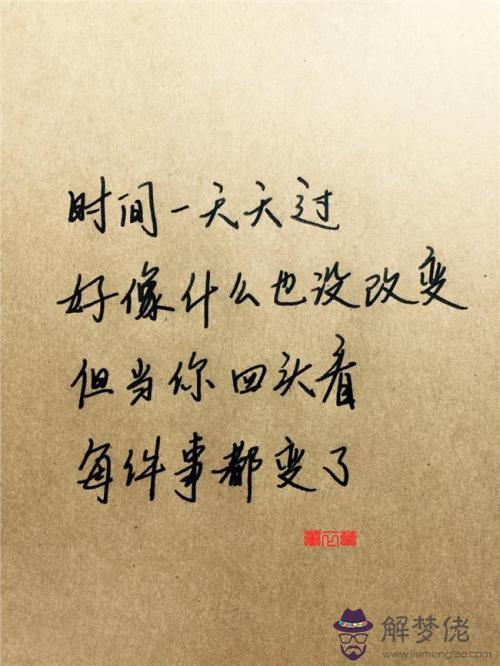 时间一天天过
好像什么也没改变
但当你回头看
每件事都变了
解梦佬
www.jiemenglao.com